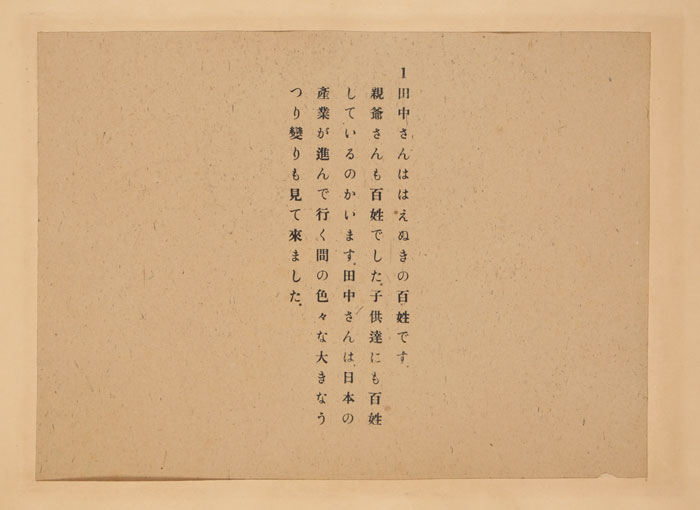 1田中さんははえぬきの百姓です.
親爺さんも百姓でした.子供達にも百姓
しているのかいます.田中さんは.日本の
産業が進んで行く間の色々な大きなう
つり變りも見て來ました.